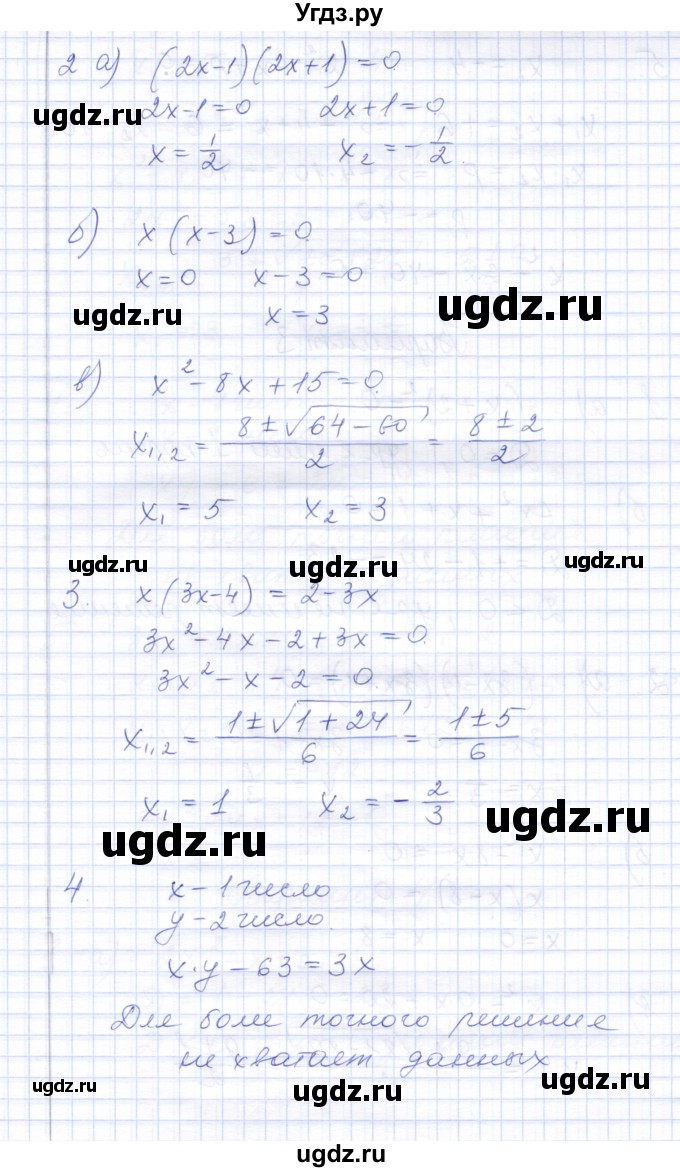 Угдз.ру
2 а) (2x-1)(2x+1)=0
2x-1=0 2x+1=0
ugdz.ru
x=1/2 x₂=-1/2.
б) x(x-3)=0.
x=0 x-3=0
ugdz.ru ugdz.ru
x=3
в) x²-8x+15=0.
x₁,₂ = (8±√(64-60))/2 = (8±2)/2
x₁=5 x₂=3
ugdz.ru ugdz.ru ugdz.ru
3. x(3x-4)=2-3x
3x²-4x-2+3x=0.
3x²-x-2=0
x₁,₂ = (1±√(1+24))/6 = (1±5)/6
x₁=1 x₂=-2/3
ugdz.ru ugdz.ru
4. x-1 число
y-2 число.
x·y-63=3x
Для боле точного решения
не хватает данных
ugdz.ru ugdz.ru ugdz.ru
ugdz.ru